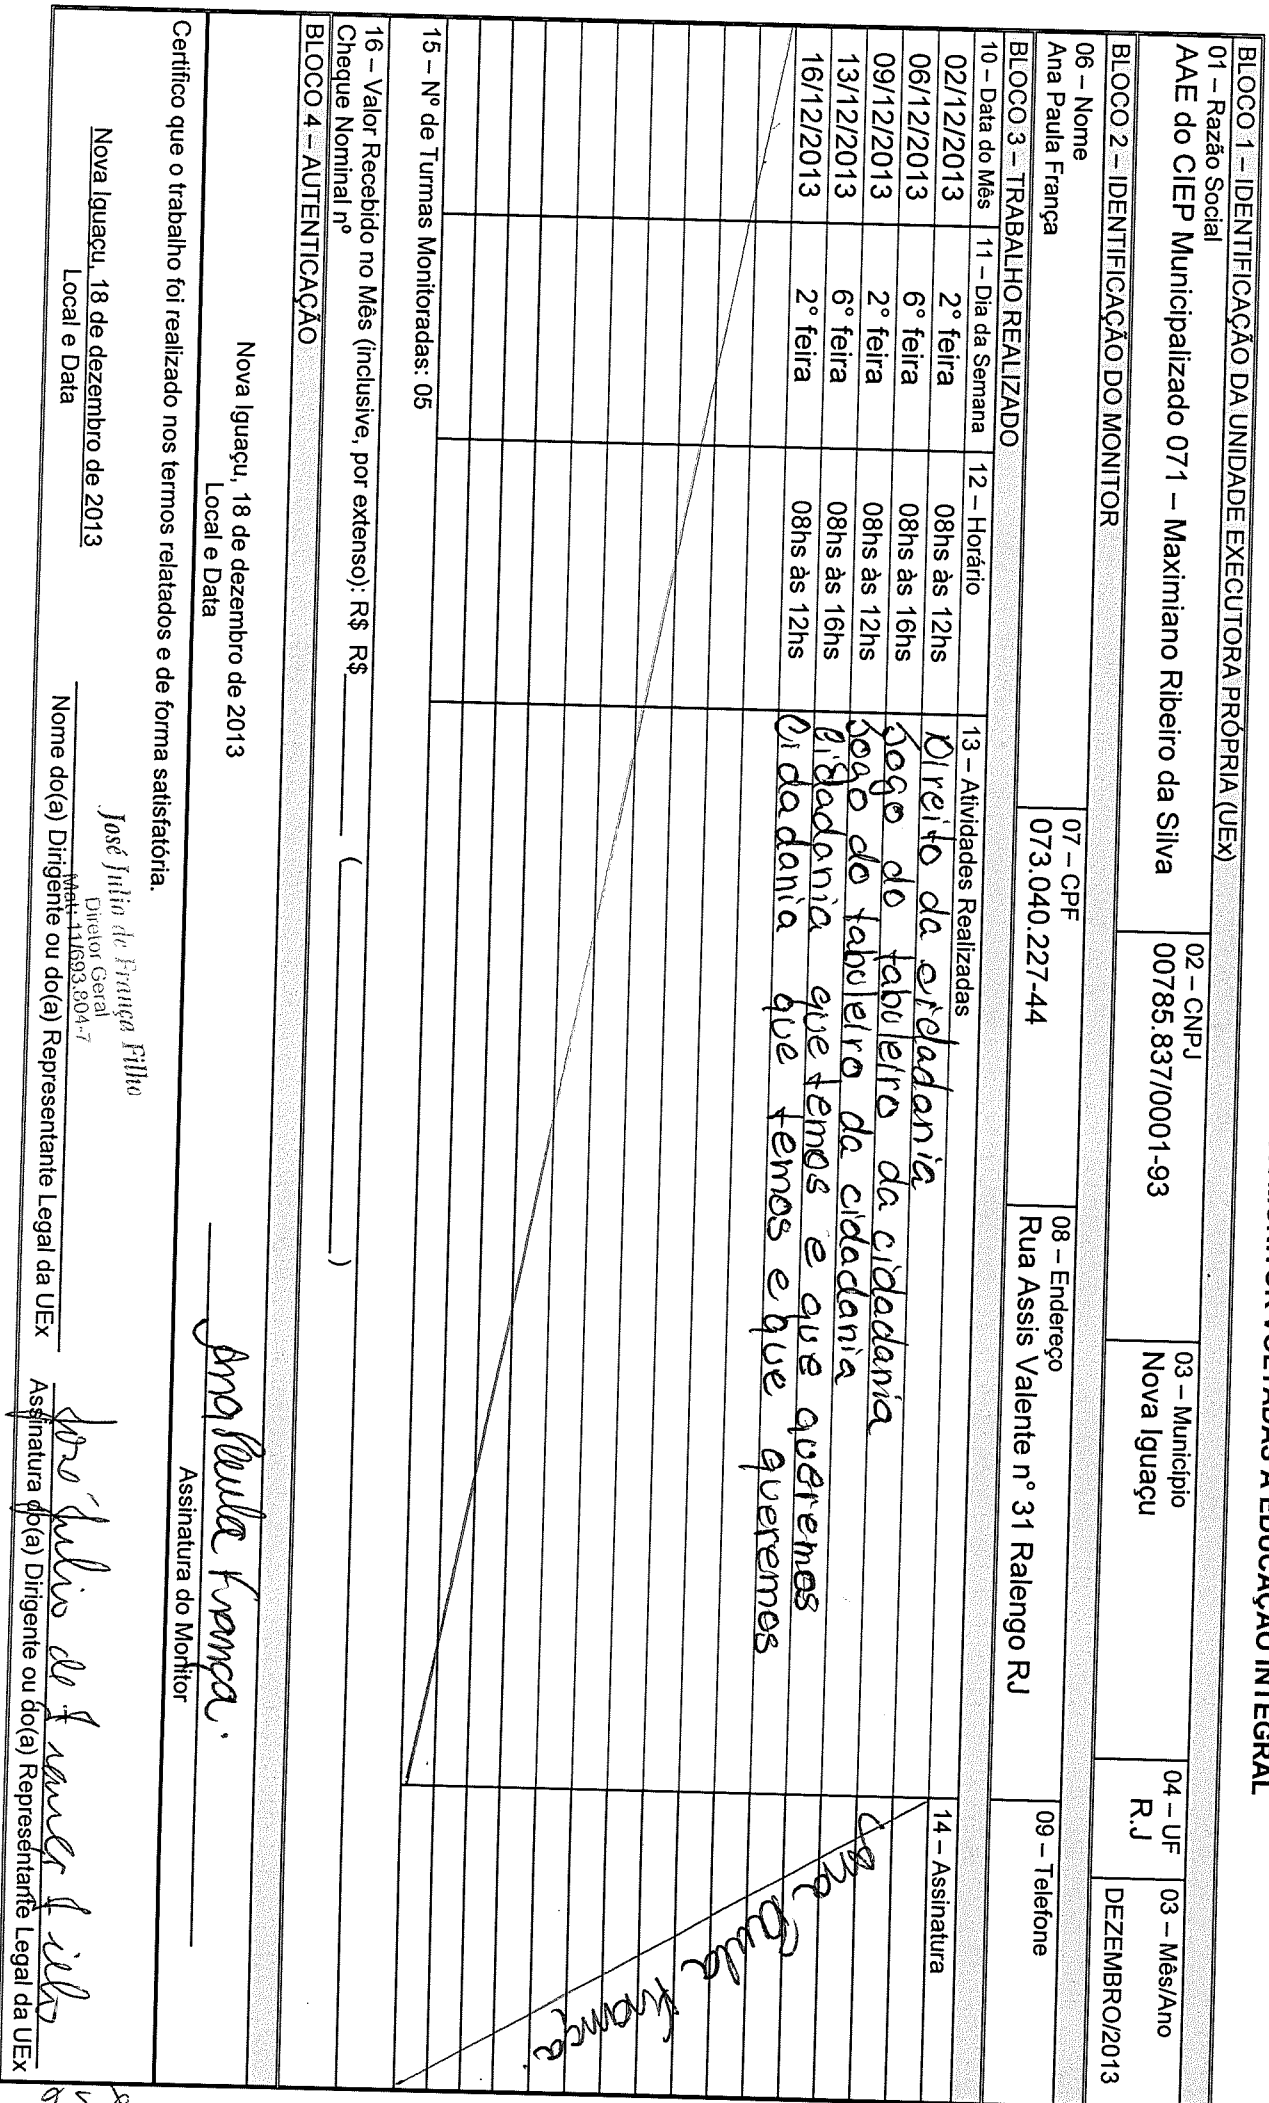 MONITOR VOLTADAS À EDUCAÇÃO INTEGRAL
BLOCO 1 – IDENTIFICAÇÃO DA UNIDADE EXECUTORA PRÓPRIA (UEx)
01 – Razão Social
AAE do CIEP Municipalizado 071 – Maximiano Ribeiro da Silva
02 – CNPJ
00785.837/0001-93
03 – Município
Nova Iguaçu
04 – UF
R.J
03 – Mês/Ano
DEZEMBRO/2013
BLOCO 2 – IDENTIFICAÇÃO DO MONITOR
06 – Nome
Ana Paula França
07 – CPF
073.040.227-44
08 – Endereço
Rua Assis Valente n° 31 Ralengo RJ
09 – Telefone
BLOCO 3 – TRABALHO REALIZADO
10 – Data do Mês 11 – Dia da Semana 12 – Horário 13 – Atividades Realizadas 14 – Assinatura
02/12/2013 2° feira 08hs às 12hs Direito da cidadania
06/12/2013 6° feira 08hs às 16hs Jogo do tabuleiro da cidadania
09/12/2013 2° feira 08hs às 12hs Jogo do tabuleiro da cidadania
13/12/2013 6° feira 08hs às 16hs Cidadania que temos e que queremos
16/12/2013 2° feira 08hs às 12hs Cidadania que temos e que queremos
Ana Paula França.
15 – Nº de Turmas Monitoradas: 05
16 – Valor Recebido no Mês (inclusive, por extenso): R$ R$________ (________)
Cheque Nominal nº
BLOCO 4 – AUTENTICAÇÃO
Nova Iguaçu, 18 de dezembro de 2013
Local e Data
Ana Paula França.
Assinatura do Monitor
Certifico que o trabalho foi realizado nos termos relatados e de forma satisfatória.
Nova Iguaçu, 18 de dezembro de 2013
Local e Data
José Julio de França Filho
Diretor Geral
Mat: 11/693.804-7
Nome do(a) Dirigente ou do(a) Representante Legal da UEx
José Julio de França Filho
Assinatura do(a) Dirigente ou do(a) Representante Legal da UEx